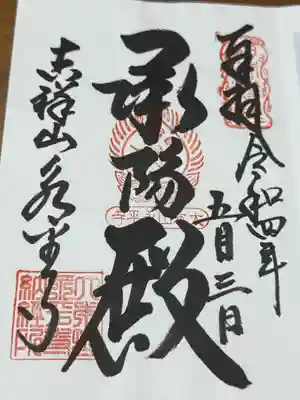 百拝
令和四年
五月三日
承陽殿
吉祥山永平寺